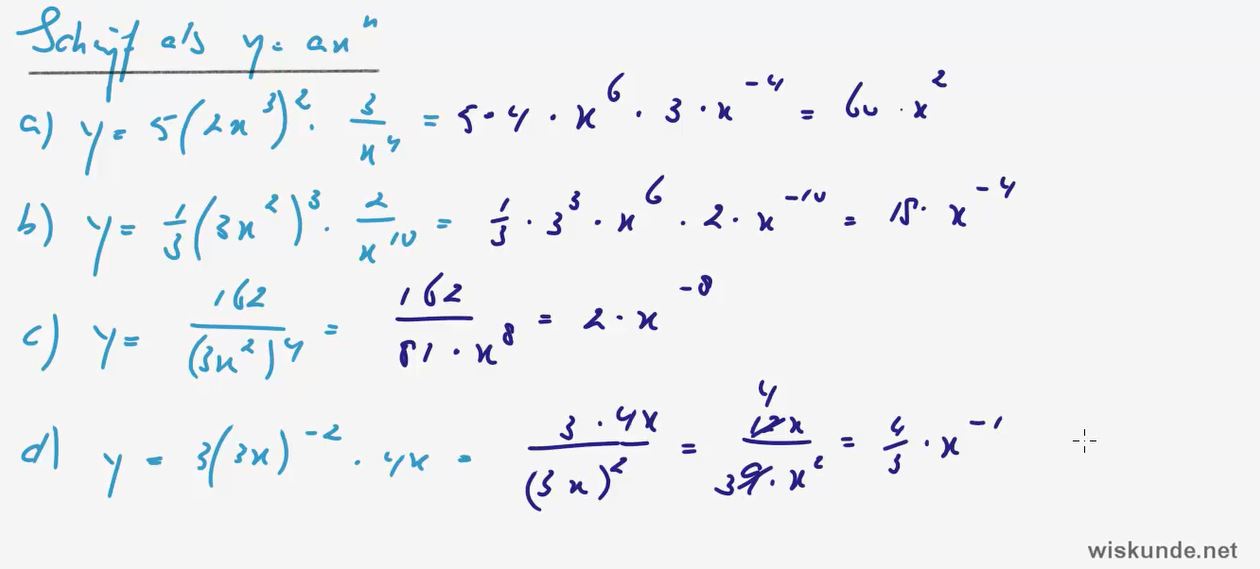 Schrijf als y = ax^n
a) y = 5(2x^3)^2 · 3/x^4 = 5 · 4 · x^6 · 3 · x^-4 = 60 · x^2
b) y = 1/3(3x^2)^3 · 2/x^10 = 1/3 · 3^3 · x^6 · 2 · x^-10 = 18 · x^-4
c) y = 162/(3x^2)^4 = 162/81 · x^8 = 2 · x^-8
d) y = 3(3x)^-2 · 4x = 3 · 4x/(3x)^2 = 4 12x/3 9 · x^2 = 4/3 · x^-1
wiskunde.net